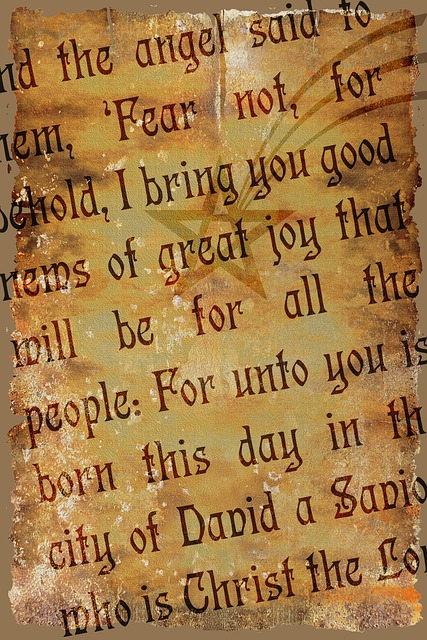 nd the angel said to
hem, 'Fear not, for
behold, I bring you good
news of great joy that
will be for all the
people: For unto you is
born this day in th
city of David a Savio
who is Christ the Lor